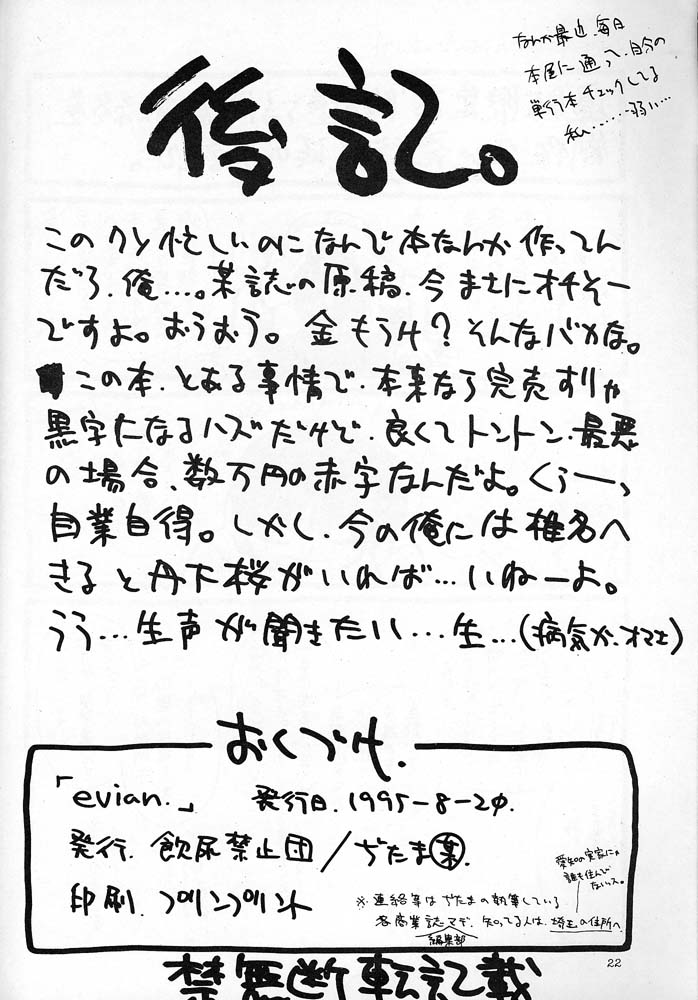 後記。
なんか最近、毎日
本屋に通って、自分の
単行本チェックしてる
私……弱い…
このクソ忙しいのになんで本なんか作ってん
だろ、俺…。某誌の原稿、今まさにオチそー
ですよ。おうおう。金もうけ?そんなバカな。
この本、とある事情で、本来なら完売すりゃ
黒字になるハズだけど、良くてトントン、最悪
の場合、数万円の赤字なんだよ。くぅーっ
自業自得。しかし、今の俺には椎名へ
きると丹下桜がいれば…いねーよ。
うう…生声が聞きたい…生…(病気か、オマエ)
おくづけ.
「evian.」 発行日.1995-8-20.
発行. 飲尿禁止団/ぢたま(某).
印刷. プリンプリント
※連絡等はぢたまの執筆している
各商業誌編集部マデ、知ってる人は、埼玉の住所へ
愛知の実家にゃ
誰も住んで
ないッス。
禁無断転記載
22